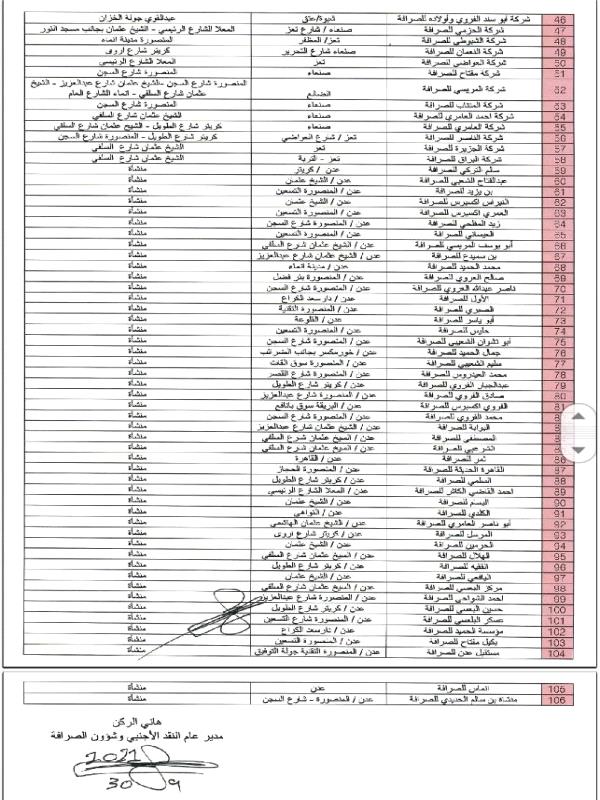 46 شركة أبو سند الفروي وأولاده للصرافة شبوة/عتق عبدالقوي جولة الخزان
47 شركة الحزمي للصرافة صنعاء / شارع تعز المعلا الشارع الرئيسي - الشيخ عثمان بجانب مسجد النور
48 شركة الشيوطي للصرافة تعز/ المظفر المنصورة مدينة انماء
49 شركة النعمان للصرافة صنعاء شارع التحرير كريتر شارع اروى
50 شركة العواضي للصرافة تعز المعلا الشارع الرئيسي
51 شركة مفتاح للصرافة صنعاء المنصورة شارع السجن
52 شركة المريسي للصرافة الضالع المنصورة شارع السجن - الشيخ عثمان شارع عبدالعزيز - الشيخ
عثمان شارع السلفي - انماء الشارع العام
53 شركة المنتاب للصرافة صنعاء المنصورة شارع السجن
54 شركة احمد العامري للصرافة صنعاء الشيخ عثمان شارع السلفي
55 شركة العامري للصرافة صنعاء كريتر شارع الطويل - الشيخ عثمان شارع السلفي
56 شركة الناصر للصرافة تعز / شارع العواضي كريتر شارع الطويل - المنصورة شارع السجن
57 شركة الجزيرة للصرافة تعز الشيخ عثمان شارع السلفي
58 شركة البراق للصرافة تعز - التربة الشيخ عثمان شارع السلفي
59 سالم التركي للصرافة عدن / كريتر منشأة
60 عبدالفتاح الشعبي للصرافة عدن / الشيخ عثمان منشأة
61 بن يزيد للصرافة عدن / المنصورة التسعين منشأة
62 النبراس اكسبرس للصرافة عدن / الشيخ عثمان منشأة
63 العمري اكسبرس للصرافة عدن / المنصورة التسعين منشأة
64 زيد المفلحي للصرافة عدن / المنصورة شارع السجن منشأة
65 العيسائي للصرافة عدن / المنصورة التسعين منشأة
66 أبو يوسف المريسي للصرافة عدن / الشيخ عثمان شارع السلفي منشأة
67 بن سميدع للصرافة عدن / الشيخ عثمان شارع عبدالعزيز منشأة
68 محمد الحميد للصرافة عدن / مدينة انماء منشأة
69 صالح العروي للصرافة عدن / المنصورة بئر فضل منشأة
70 ناصر عبدالله العروي للصرافة عدن / المنصورة شارع السجن منشأة
71 الأول للصرافة عدن / دارسعد الكراع منشأة
72 الصبري للصرافة عدن / المنصورة التقنية منشأة
73 أبو ياسر للصرافة عدن / القلوعة منشأة
74 حابس للصرافة عدن / المنصورة التسعين منشأة
75 أبو نشوان الشعيبي للصرافة عدن / المنصورة شارع السجن منشأة
76 جمال الحميد للصرافة عدن / خورمكسر بجانب الضرائب منشأة
77 سليم الشعيبي للصرافة عدن / المنصورة سوق القات منشأة
78 محمد العيدروس للصرافة عدن / المنصورة شارع القصر منشأة
79 عبدالجبار الفروي للصرافة عدن / كريتر شارع الطويل منشأة
80 صادق الفروي للصرافة عدن / المنصورة شارع عبدالعزيز منشأة
81 الفروي اكسبرس للصرافة عدن / البريقة سوق يافع منشأة
8 محمد الفروي للصرافة عدن / المنصورة شارع السجن منشأة
8 البراية للصرافة عدن / الشيخ عثمان شارع عبدالعزيز منشأة
8 المصطفى للصرافة عدن / الشيخ عثمان شارع السلفي منشأة
8 الشرعبي للصرافة عدن / الشيخ عثمان شارع السلفي منشأة
86 نمر للصرافة عدن / القاهرة منشأة
87 القاهرة الحديثة للصرافة عدن / المنصورة الحجاز منشأة
88 السلمي للصرافة عدن / كريتر شارع الطويل منشأة
89 احمد القاضي الكاش للصرافة عدن / المعلا الشارع الرئيسي منشأة
90 البسام للصرافة عدن / الشيخ عثمان منشأة
91 الكلدي للصرافة عدن / التواهي منشأة
92 أبو ناصر العامري للصرافة عدن / الشيخ عثمان الهاشمي منشأة
93 المرسل للصرافة عدن / كريتر شارع اروى منشأة
94 الحرمين للصرافة عدن / الشيخ عثمان منشأة
95 الهلال للصرافة عدن / الشيخ عثمان شارع السلفي منشأة
96 الفقيه للصرافة عدن / كريتر شارع الطويل منشأة
97 اليافعي للصرافة عدن / الشيخ عثمان منشأة
98 مركز البعسي للصرافة عدن / الشيخ عثمان شارع السلفي منشأة
99 احمد الشواحي للصرافة عدن / المنصورة شارع عبدالعزيز منشأة
100 حسين البعسي للصرافة عدن / كريتر شارع الطويل منشأة
101 عسكر البلعسي للصرافة عدن / المنصورة شارع التسعين منشأة
102 مؤسسة الحميد للصرافة عدن / دارسعد الكراع منشأة
103 بكيل مفتاح للصرافة عدن / المنصورة التسعين منشأة
104 مستقبل عدن للصرافة عدن / المنصورة التقنية جولة التوفيق منشأة
105 الماس للصرافة عدن منشأة
106 منشأة بن سالم الحديدي للصرافة عدن / المنصورة - شارع السجن منشأة
هاني الركن
مدير عام النقد الأجنبي وشؤون الصرافة
2021
30 9